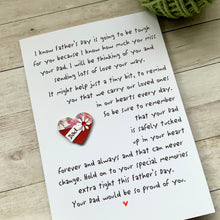 I know Father's Day is going to be tough
for you because I know how much you miss
your Dad. I will be thinking of you and
sending lots of love your way.
It might help just a tiny bit, to remind
you that we carry our loved ones
in our hearts every day.
So be sure to remember
that your Dad
is safely tucked
up in your heart
forever and always and that can never
change. Hold on to your special memories
extra tight this Father's Day.
Your Dad would be so proud of you.